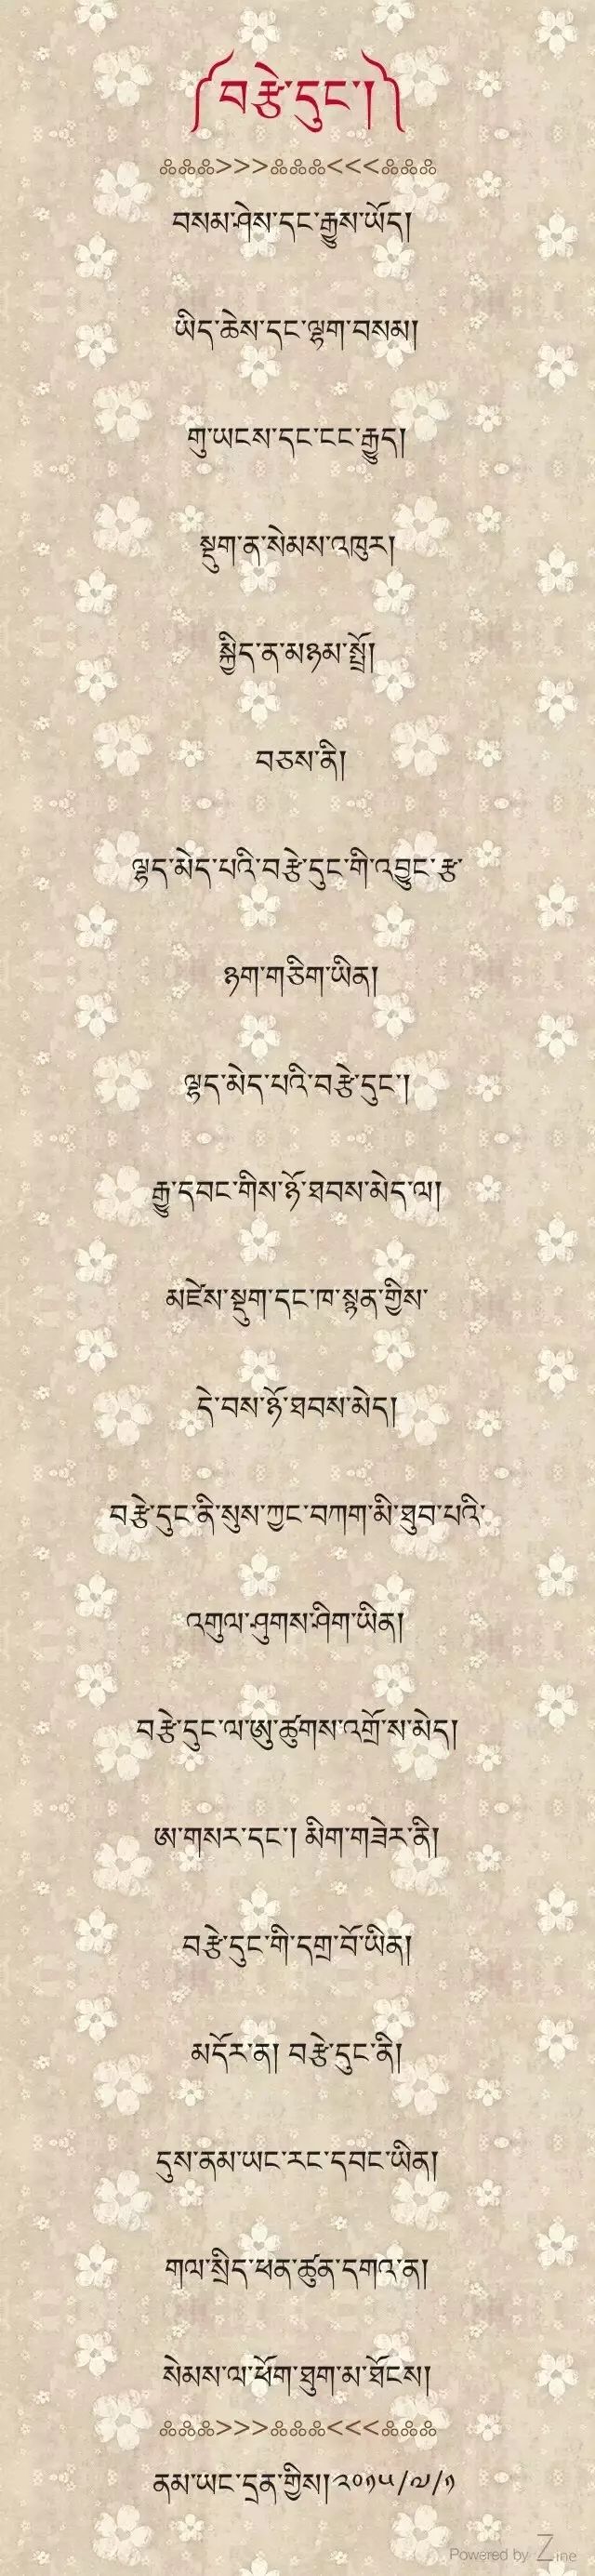 ༼བརྩེ་དུང་།༽
བསམ་ཤེས་དང་རྒྱུས་ཡོད།
ཡིད་ཆེས་དང་ལྷག་བསམ།
གུ་ཡངས་དང་ངང་རྒྱུད།
སྡུག་ན་སེམས་འཁུར།
སྐྱིད་ན་མཉམ་སྤྲོ།
བཅས་ནི།
ལྷད་མེད་པའི་བརྩེ་དུང་གི་འབྱུང་རྩ་
ཉག་གཅིག་ཡིན།
ལྷད་མེད་པའི་བརྩེ་དུང་།
རྒྱུ་དབང་གིས་ཉོ་ཐབས་མེད་ལ།
མཛེས་སྡུག་དང་ཁ་སྙན་གྱིས་
དེ་བས་ཉོ་ཐབས་མེད།
བརྩེ་དུང་ནི་སུས་ཀྱང་བཀག་མི་ཐུབ་པའི་
འགུལ་ཤུགས་ཤིག་ཡིན།
བརྩེ་དུང་ལ་ཨུ་ཚུགས་འགྲོ་ས་མེད།
ཨ་གསར་དང་། མིག་གཟེར་ནི།
བརྩེ་དུང་གི་དགྲ་བོ་ཡིན།
མདོར་ན། བརྩེ་དུང་ནི།
དུས་ནམ་ཡང་རང་དབང་ཡིན།
གལ་སྲིད་ཕན་ཚུན་དགའ་ན།
སེམས་ལ་ཕོག་ཐུག་མ་ཐོངས།
ནམ་ཡང་དྲན་གྱིས།༢༠༡༥/༧/༡
Powered by Zine